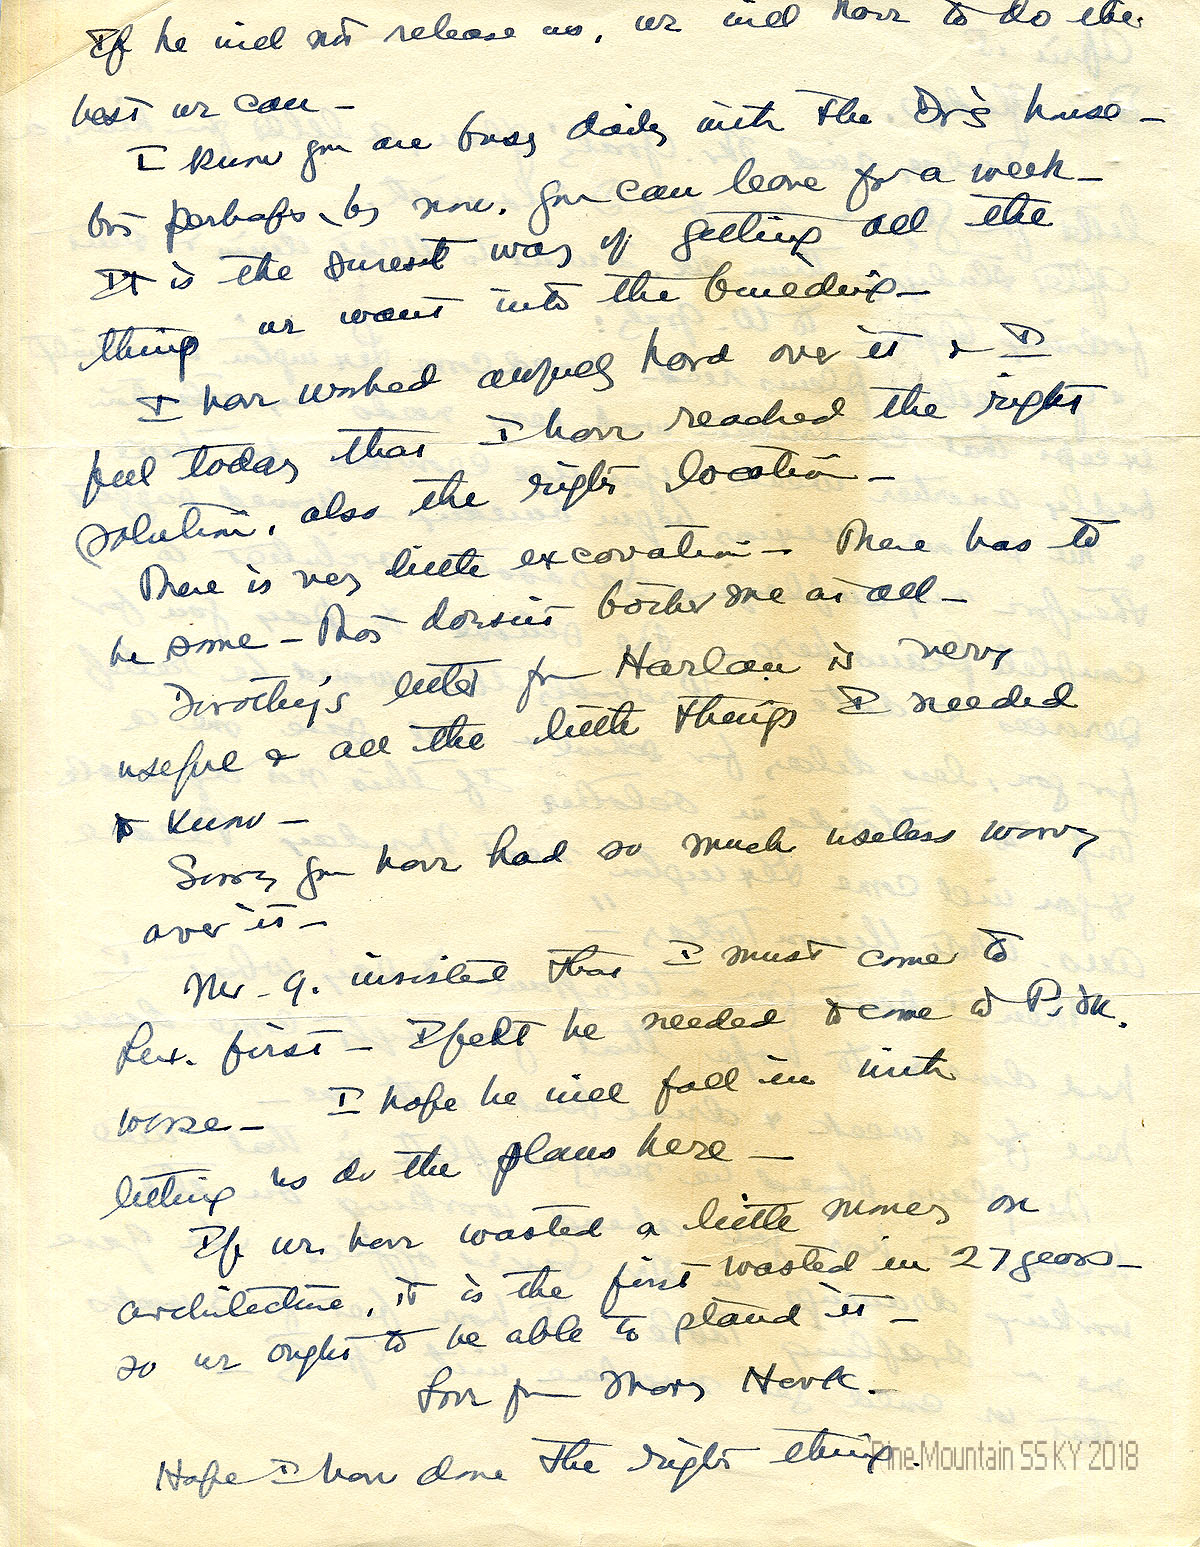 If he will not release us, we will have to do the
best we can –
I know you are busy daily with the Dr's house –
but perhaps, by now, you can leave for a week –
It is the surest way of getting all the
things we want into the building –
I have worked awfully hard over it & I
feel today that I have reached the right
solution, also the right location –
There is very little excavation – There has to
be some – That doesn't bother me at all –
Dorothy's letter from Harlan is very
useful & all the little things I needed
to know –
Sorry you have had so much useless worry
over it –
Mr. G. insisted that I must come to
Lex. first – I felt he needed to come to P. M.
worse – I hope he will fall in with
letting us do the plans here –
If we have wasted a little money on
architecture, it is the first wasted in 27 years –
so we ought to be able to stand it –
Love from Mary Hook. –
Hope I have done the right thing.
Pine Mountain SS KY 2018